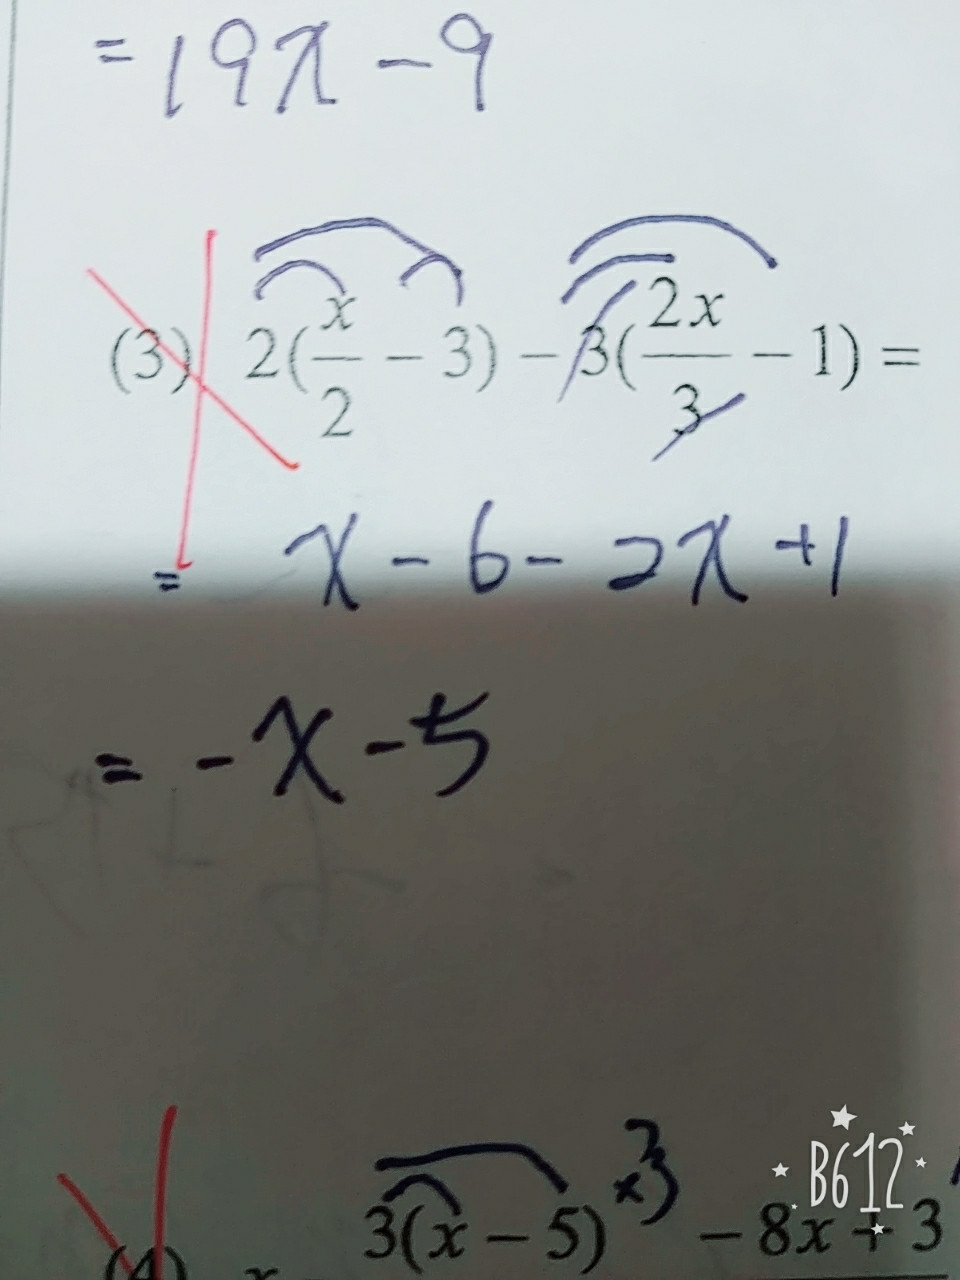 = 19x - 9
(3) 2(x/2 - 3) - 3(2x/3 - 1) =
= x - 6 - 2x + 1
= -x - 5
(4) x 3(x - 5) ×3 - 8x + 3
B612